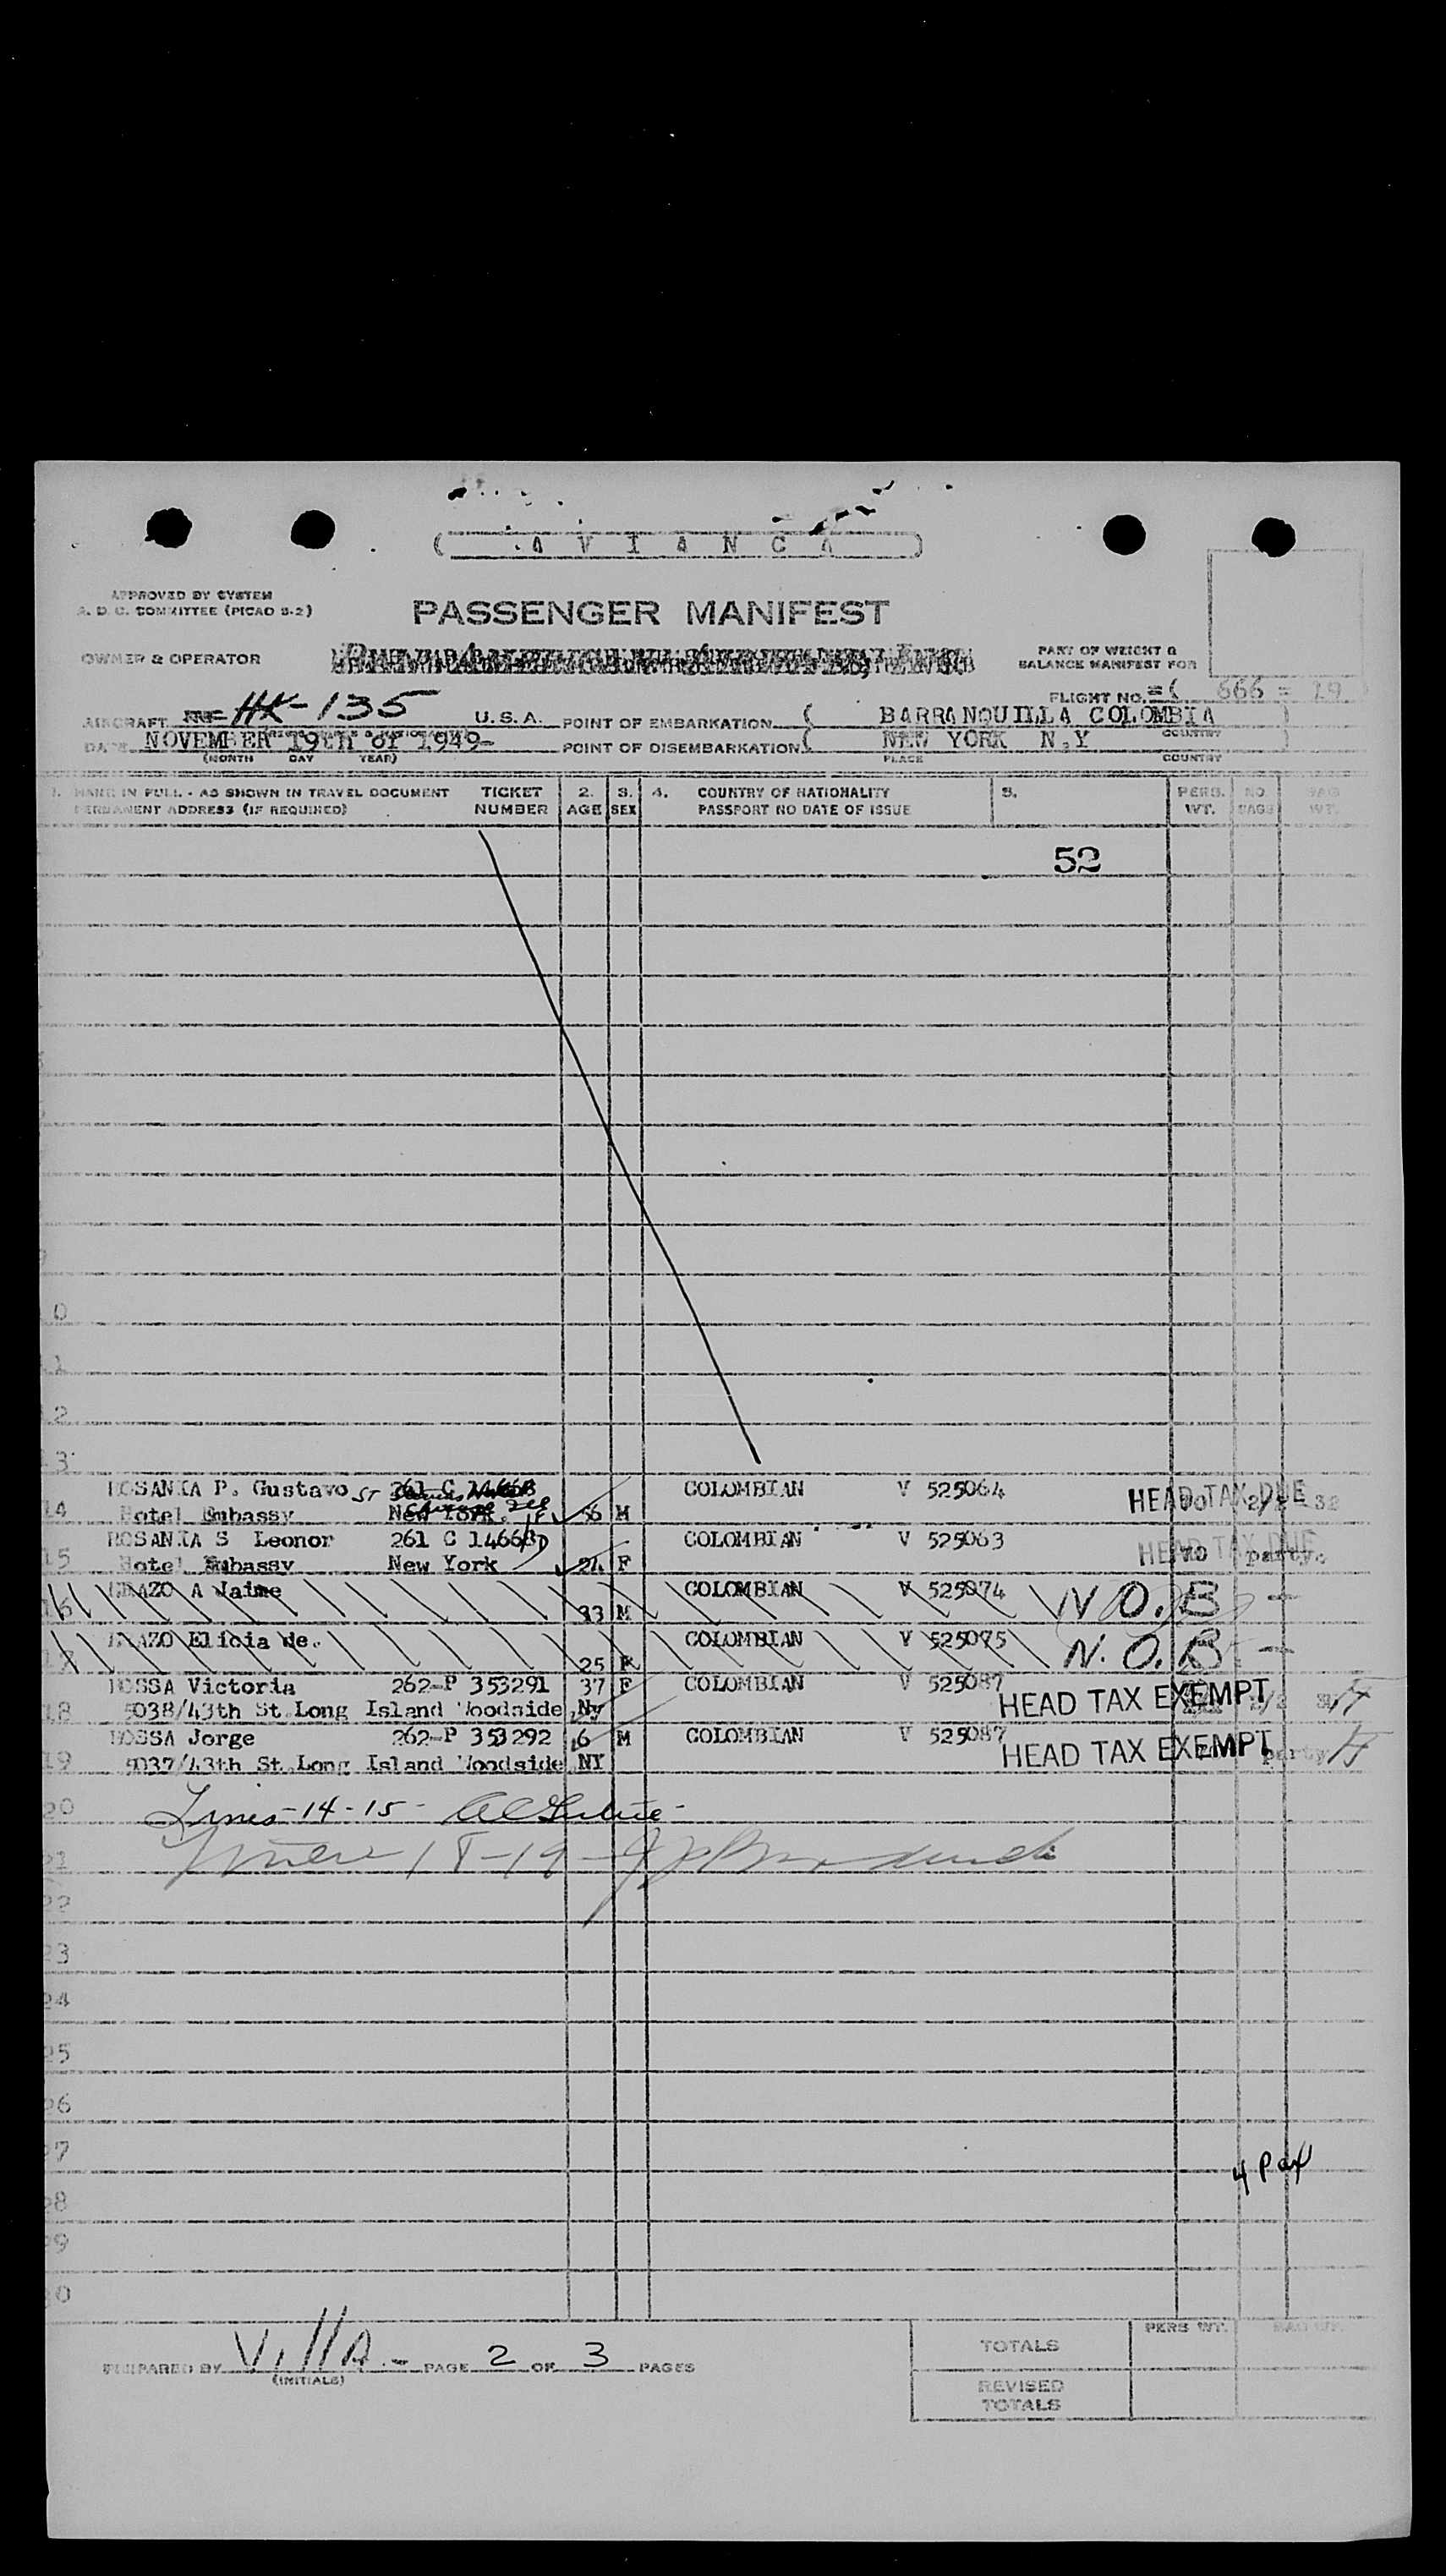 ( A V I A N C A )
APPROVED BY SYSTEM
A. D. C. COMMITTEE (PICAO S-2)
PASSENGER MANIFEST
OWNER & OPERATOR
PART OF WEIGHT &
BALANCE MANIFEST FOR
FLIGHT NO. =( 666 = 19
AIRCRAFT HK-135 U. S. A. POINT OF EMBARKATION ( BARRANQUILLA COLOMBIA )
COUNTRY
DATE NOVEMBER 19th of 1949- POINT OF DISEMBARKATION ( NEW YORK N.Y )
(MONTH DAY YEAR) PLACE COUNTRY
1. NAME IN FULL - AS SHOWN IN TRAVEL DOCUMENT TICKET 2. 3. 4. COUNTRY OF NATIONALITY 5. PERS. NO. BAG
PERMANENT ADDRESS (IF REQUIRED) NUMBER AGE SEX PASSPORT NO DATE OF ISSUE WT. BAGS WT.
52
0
1
2
3
ROSANIA P. Gustavo 261 C COLOMBIAN V 525064 HEAD TAX DUE
14 Hotel Embassy New York M
ROSANIA S Leonor 261 C 14663 COLOMBIAN V 525063 HEAD TAX DUE
15 Hotel Embassy New York 24 F party.
A Jaime COLOMBIAN V 525074 N O. B -
16 33 M
Elicia de. COLOMBIAN V 525075 N. O. B -
17 25 F
Victoria 262-P 353291 37 F COLOMBIAN V 525087 HEAD TAX EXEMPT
18 5038/43th St.Long Island Woodside Ny
Jorge 262-P 353292 6 M COLOMBIAN V 525087 HEAD TAX EXEMPT party
19 5037/43th St.Long Island Woodside NY
20 Lines-14-15-
21 18-19-
22
23
24
25
26
27
4 Pax
28
29
30
PREPARED BY Villa.- PAGE 2 OF 3 PAGES
(INITIALS)
PERS WT. BAG WT.
TOTALS
REVISED
TOTALS